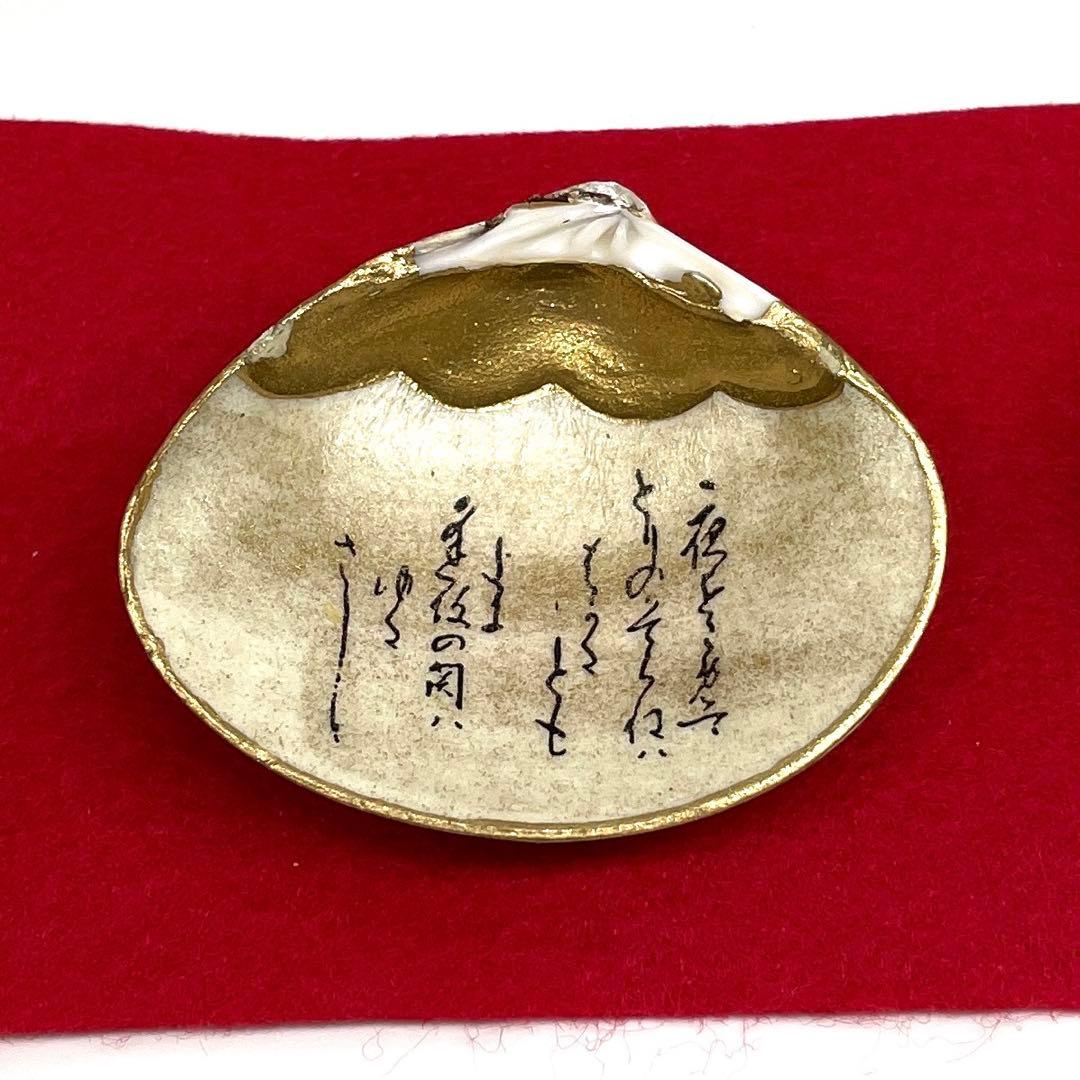 夜をこめて
とりのそら祢ハ
はかる
とも
よに
逢坂の関ハ
ゆる
さし